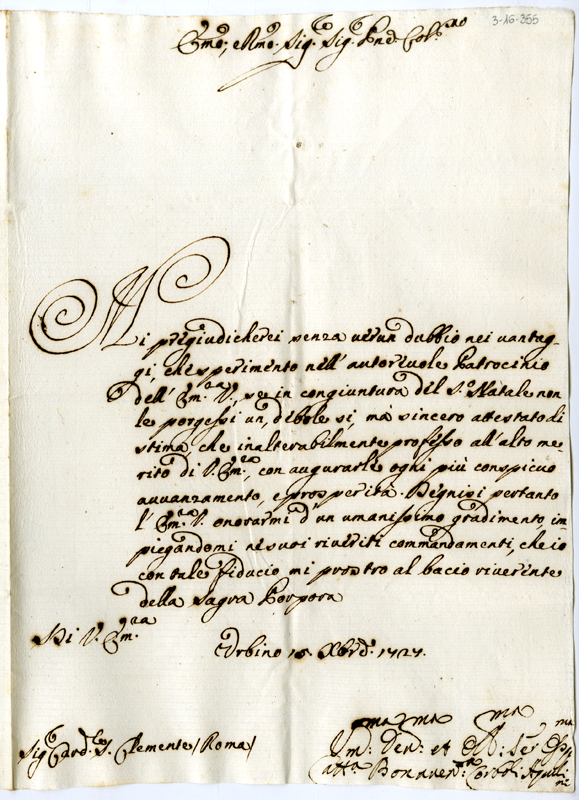 3-16-355
Emo, e Rmo Sig.e Sig.e Pne Col.mo
Mi pregiudicherei senza verun dubbio nei vantag-
gi, che sperimento nell' autorevole Patrocinio
dell' Em.za V., se in congiuntura del S.o Natale non
le porgessi un, debole si, mà sincero attestato di
stima, che inalterabilmente professo all' alto me-
rito di V. Em.za, con augurarle ogni più conspicuo
avvanzamento, e prosperità. Degnisi pertanto
l' Em.za V. onorarmi d' un umanissimo gradimento, im-
piegandomi ne suoi riveriti commandamenti, che io
con tale fiducio mi prostro al bacio riverente
della Sagra Porpora
Di V. Em.za
Urbino 15 Xbre 1727.
Sig.e Card.le S. Clemente / Roma /
Um.mo Dev.mo et Obb.mo Ser
Bonaven.ra